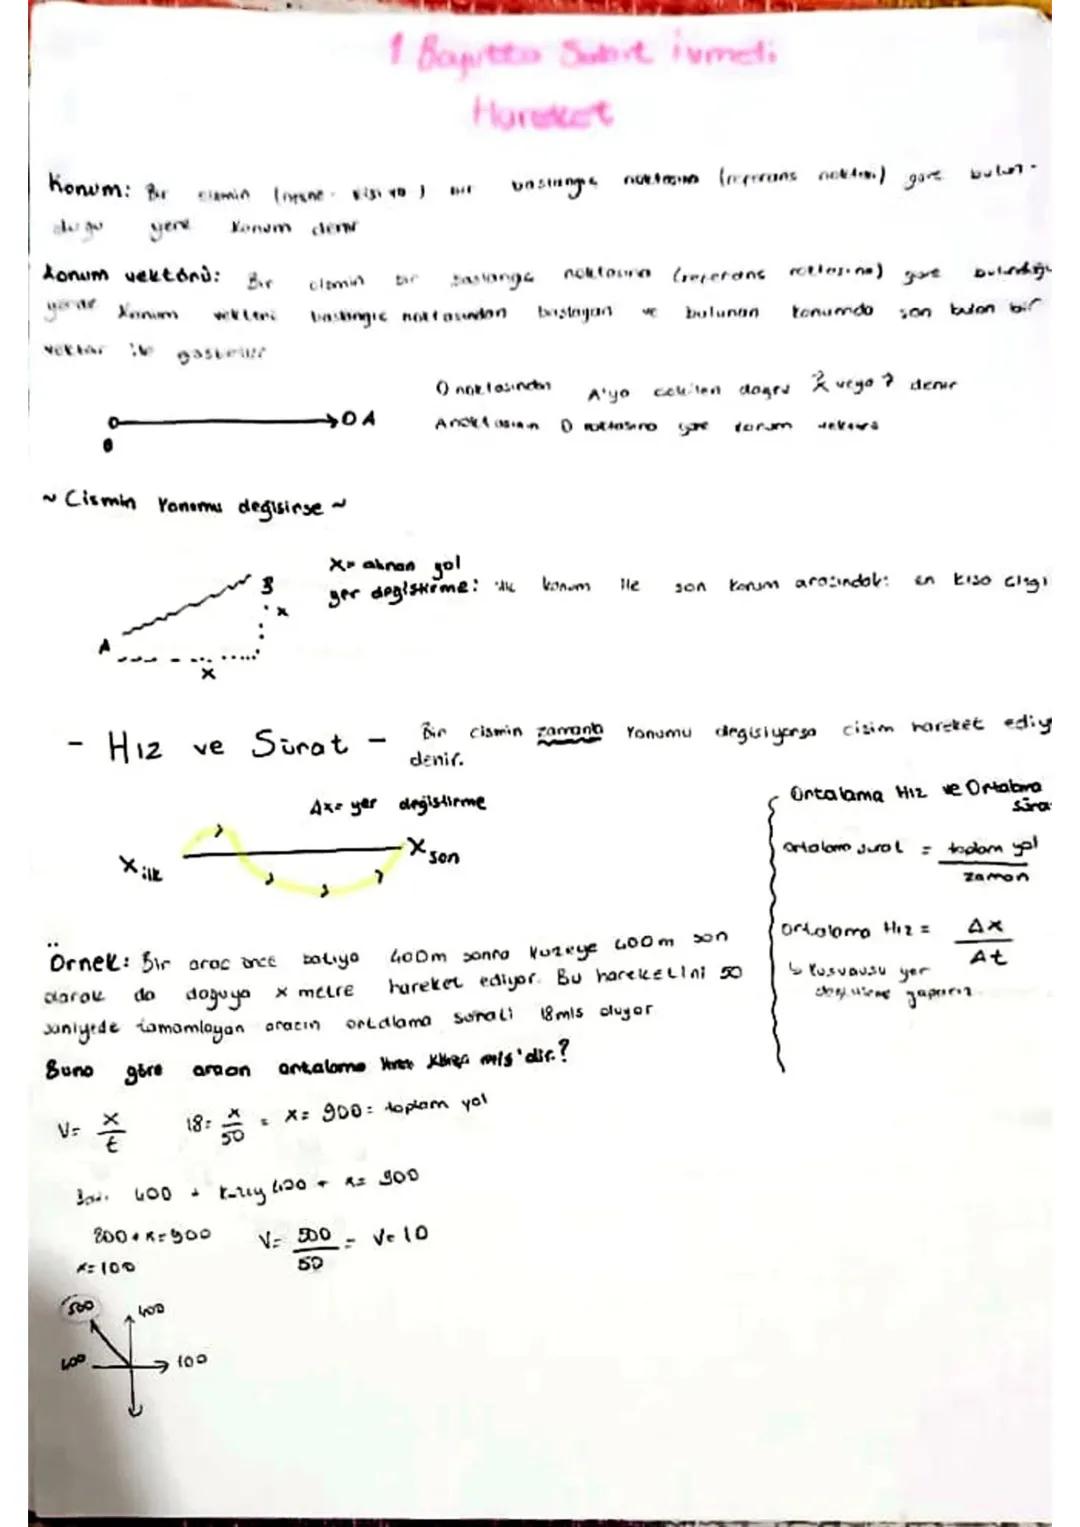 1 Boyutta Sabit İvmeli
Hareket
Konum: Bir cismin bir noktasına (referans noktası) göre bulun-
duğu yere konum denir
Konum vektörü: Bir cismin bir başlangıç noktasına (referans noktasına) göre bulunduğu
yerde konum vektörü başlangıç noktasından başlayan ve bulunan konumda son bulan bir
vektör ile gösterilir
O noktasından A'ya çekilen doğru x veya denir
A noktasının O noktasına göre konum vektörü
O A
0
~ Cismin Konumu değişirse ~
X= alınan yol
yer değiştirme: ilk konum ile son konum arasındaki en kısa çizgi
B
x
A
x
- Hız ve Sürat - Bir cismin zamanla konumu değişiyorsa cisim hareket ediy
denir.
Δx= yer değiştirme
X ilk
X son
Ortalama Hız ve Ortalama
Süra
ortalama surat = toplam yol
zaman
ortalama Hız = Δx
Δt
↳ Kuşuçuşu yer
değiştirme yaparız.
Örnek: Bir araç önce batıya 400m sonra kuzeye 400m son
olarak da doğuya x metre hareket ediyor. Bu hareketini 50
saniyede tamamlayan aracın ortalama sürati 18m/s oluyor
Buna göre aracın ortalama m/s'dir.?
V= x/t 18= x/50 = x= 900= toplam yol
400 + kuzey 400 + x= 900
800+x=900
x=100
V= 500/50 = V=10
500
400
400
100